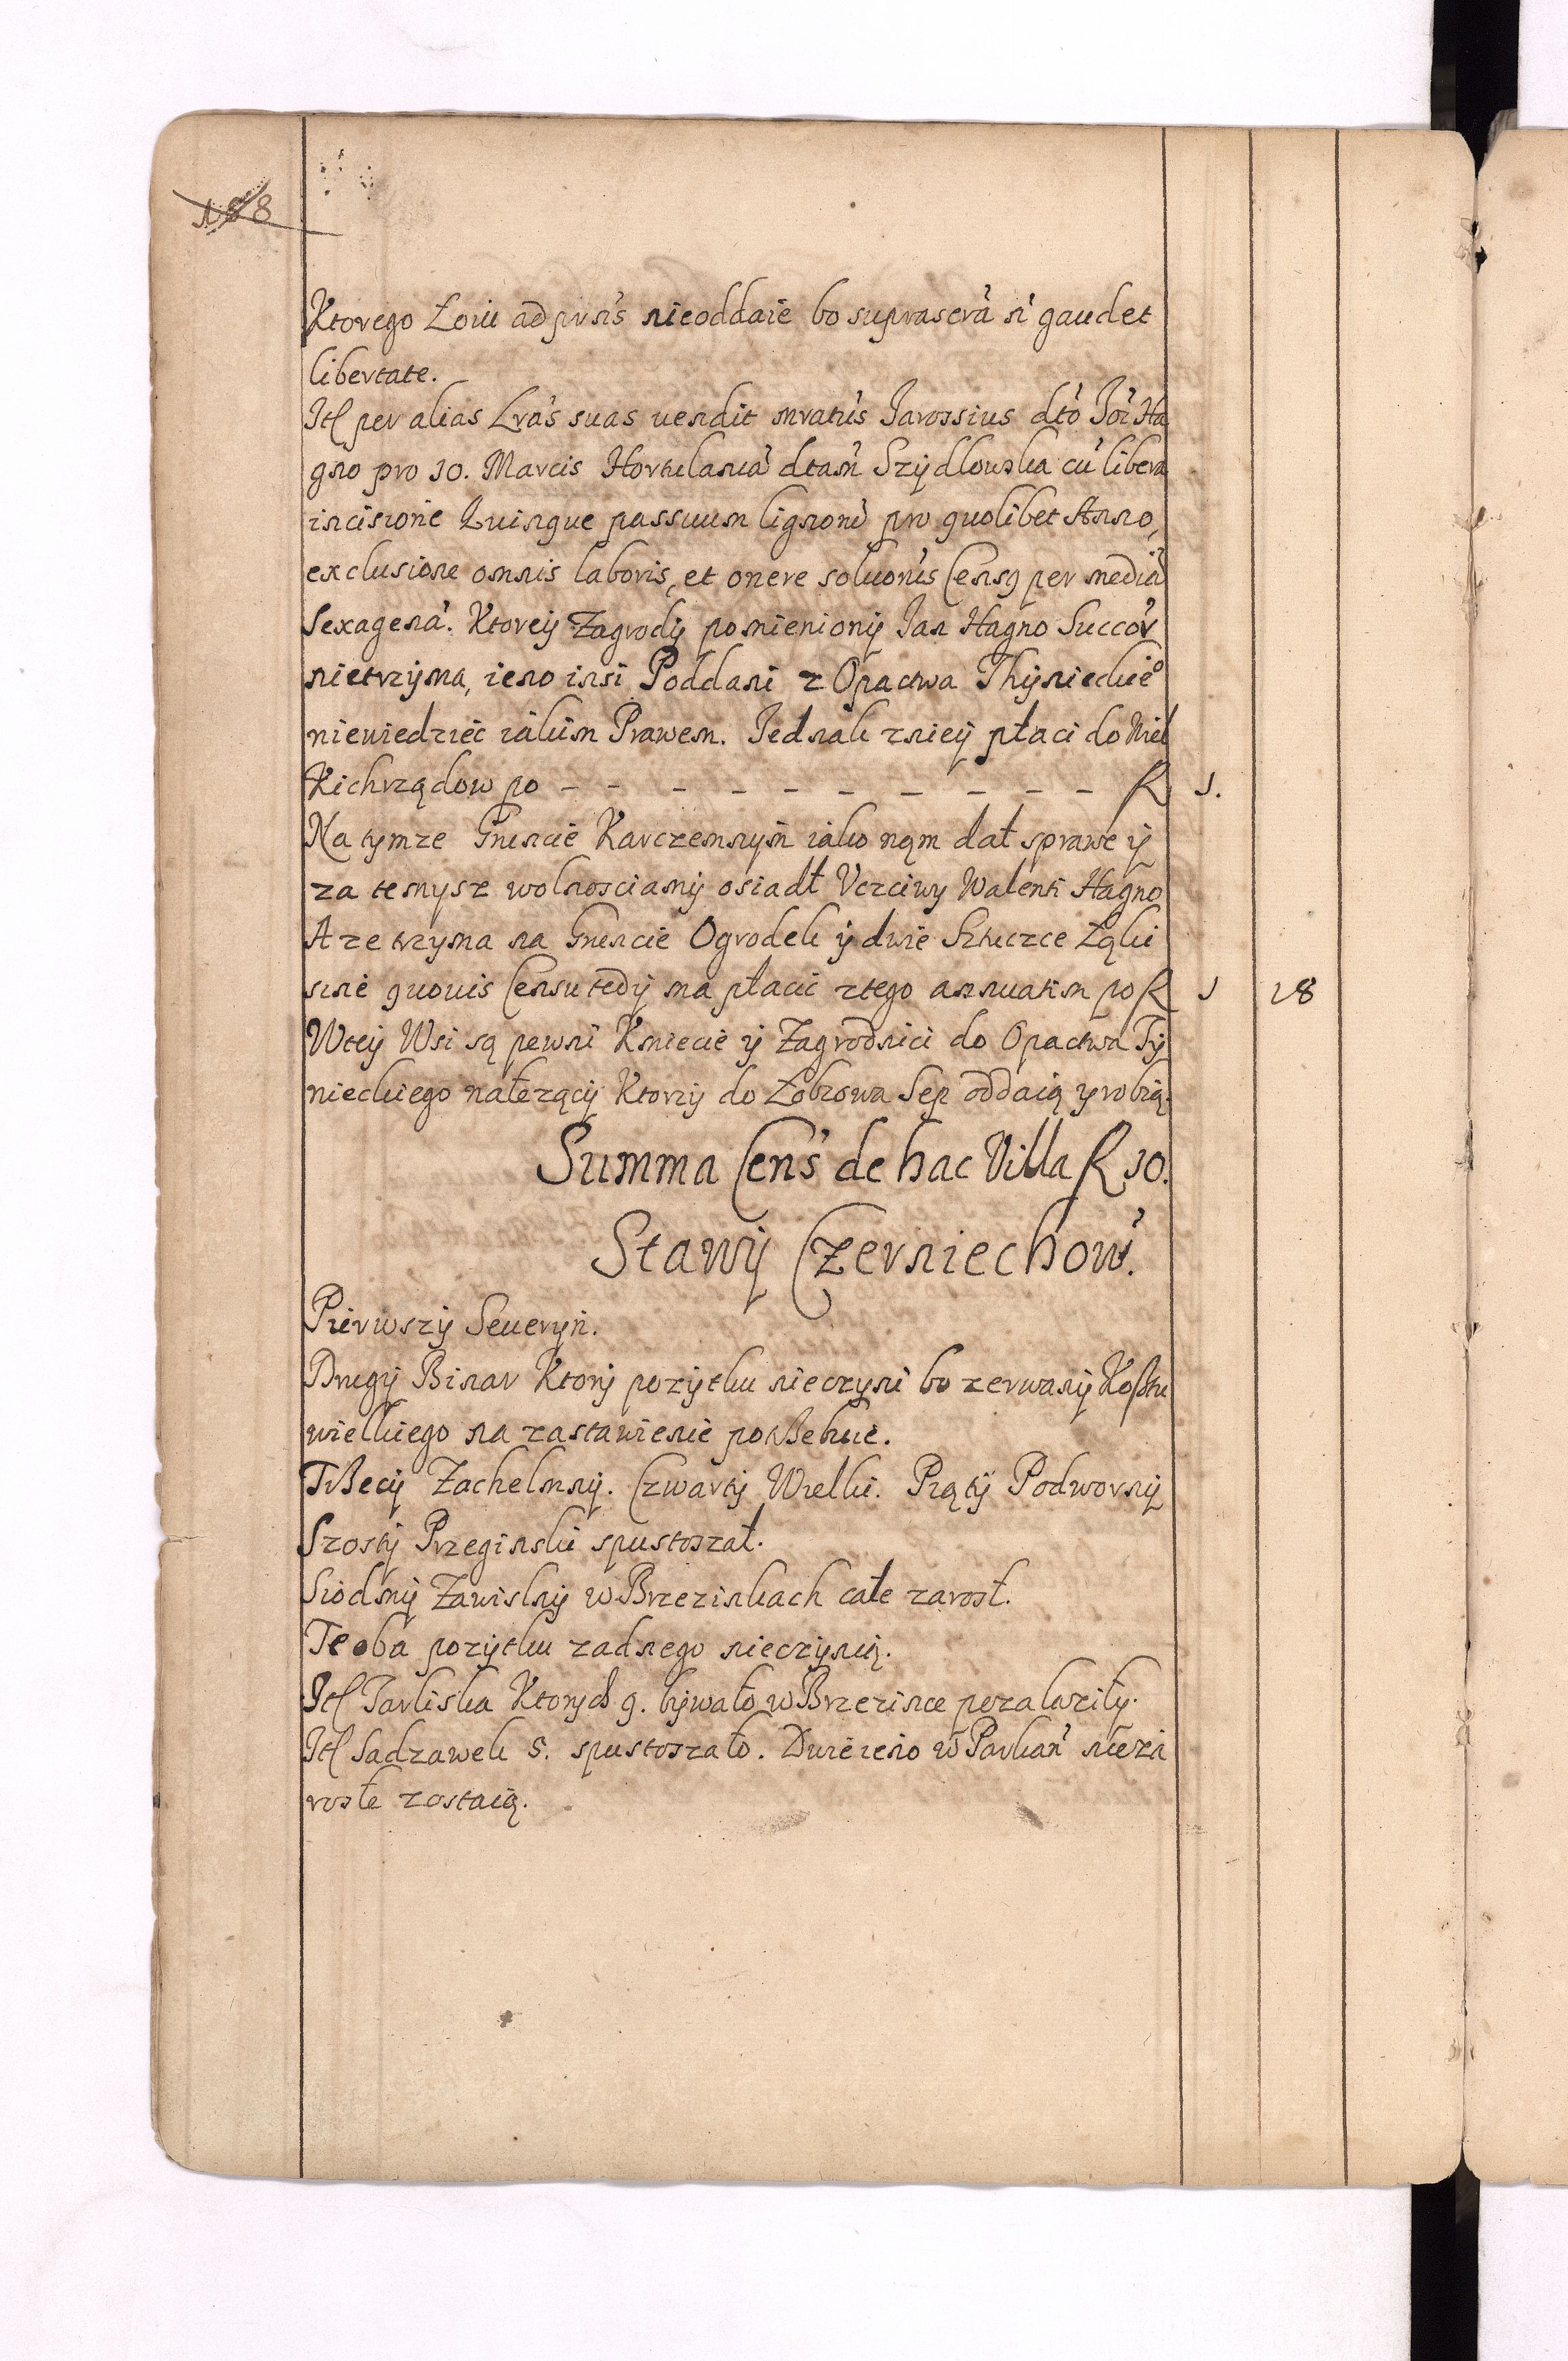 188
Ktorego Łoiu ad prns nieoddaie bo suprascrá ń gaudet
libertate.
Itē per alias Lrás suas vendit mratus Jarossius dto Joi Ha
gno pro 10. Marcis Hortulaniá dtam Szydlowska cú libera
incisione Quinque passuum lignorú pro quolibet Anno,
exclusione omnis laboris, et onere soluonis Censq per mediá
Sexagená. Ktorey Zagrody pomieniony Jan Hagno Succór
nietrzyma, ieno insi Poddani z Opactwa Thynieckieo
niewiedziec iakim Prawem. Jednak zniey płaci do Wiel
Kichrządow po - - - - - - - - - - R 1.
Na tymze Gruncie Karczemnym iako nąm dał sprawe y
za temysz wolnosciamy osiadł Vczciwy Walenti Hagno
A ze trzyma na Gruncie Ogrodek y dwie Sztuczce Łąki
sine quouis Censu tedy ma płacic ztego annuatim po R 1 18
Wtey Wsi są pewni Kmiecie y Zagrodnici do Opactwa Ty
nieckiego nałezący Ktorzy do Łobzowa Sep oddaią y robią.
Summa Cens de hac Villa R 10.
Stawy Czerniechow.
Pierwszy Seueryn.
Drugy Binar Ktory pozytku nieczyni bo zerwany Koßtu
wielkiego na zastawienie potrßebuie.
Trßecy Zachelmny. Czwarty Wielki. Piąty Podworny
Szosty Przeginski spustoszał.
Siodmy Zawislny w Brzezinkach cale zarosł.
Te oba pozytku zadnego nieczynią.
Itē Tarliska Ktorych 9. bywało w Brzezince pozalaziły.
Itē Sadzawek 5. spustoszało. Dwie ieno w Parkan nieza
rosłe zostaią.